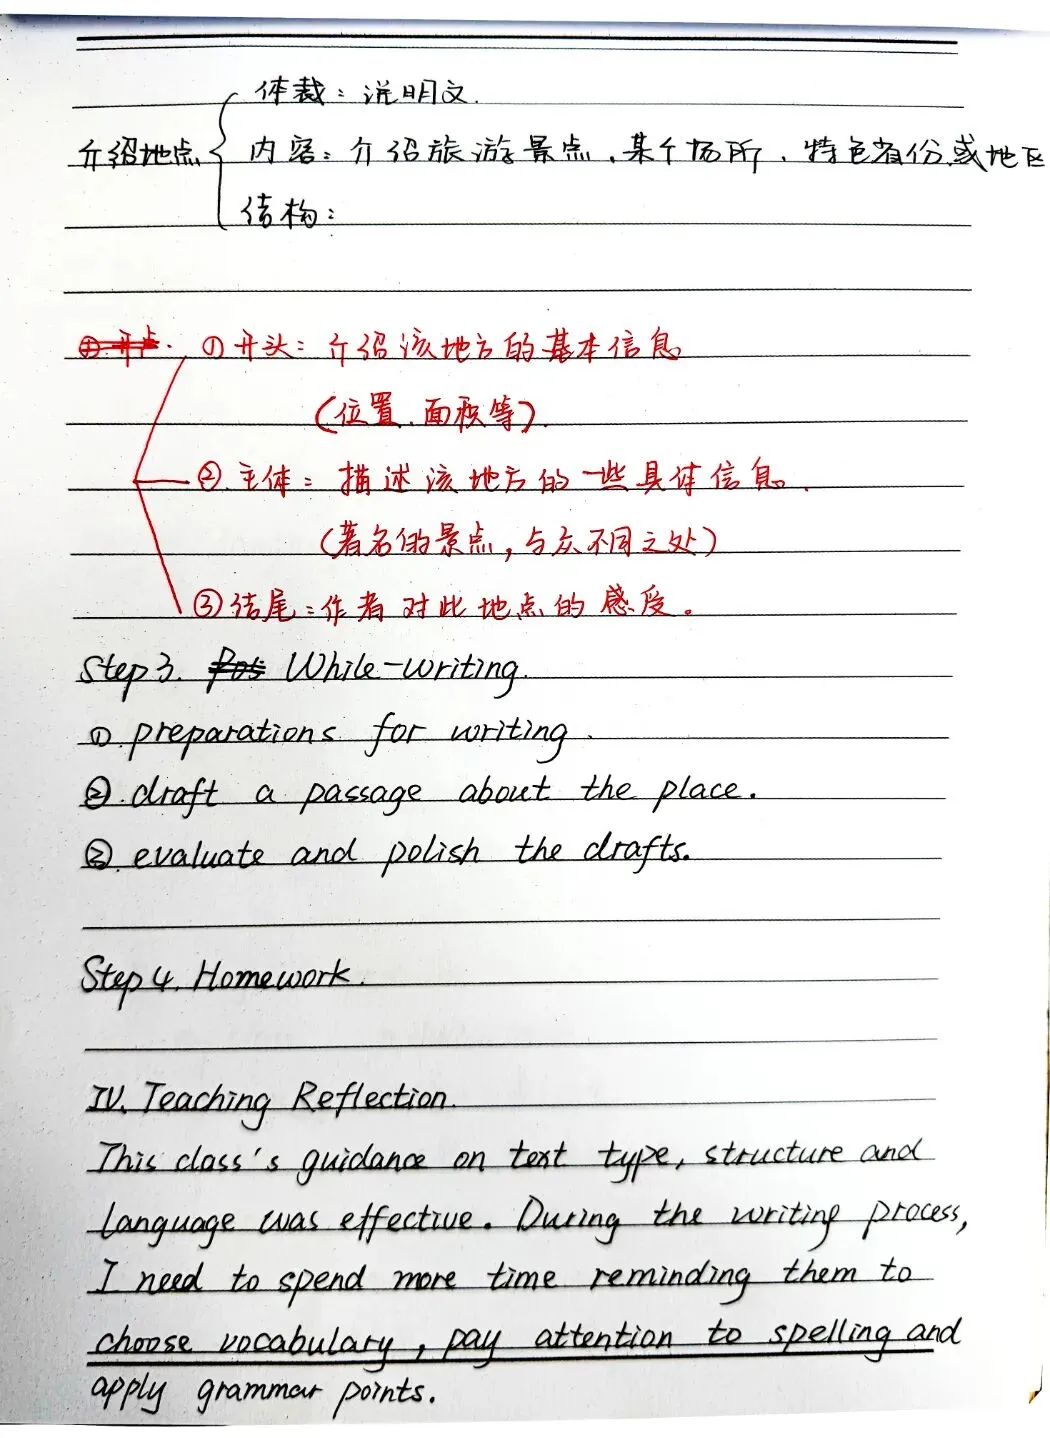 体裁：说明文.
介绍地点 内容：介绍旅游景点、某个场所、特色省份或地区
结构：
①开头：介绍该地方的基本信息
(位置、面积等)
②.主体：描述该地方的一些具体信息.
(著名的景点，与众不同之处)
③结尾：作者对此地点的感受。
Step 3. While-writing.
①.preparations for writing.
②.draft a passage about the place.
②.evaluate and polish the drafts.
Step 4. Homework.
IV. Teaching Reflection.
This class's guidance on text type, structure and
language was effective. During the writing process,
I need to spend more time reminding them to
choose vocabulary, pay attention to spelling and
apply grammar points.